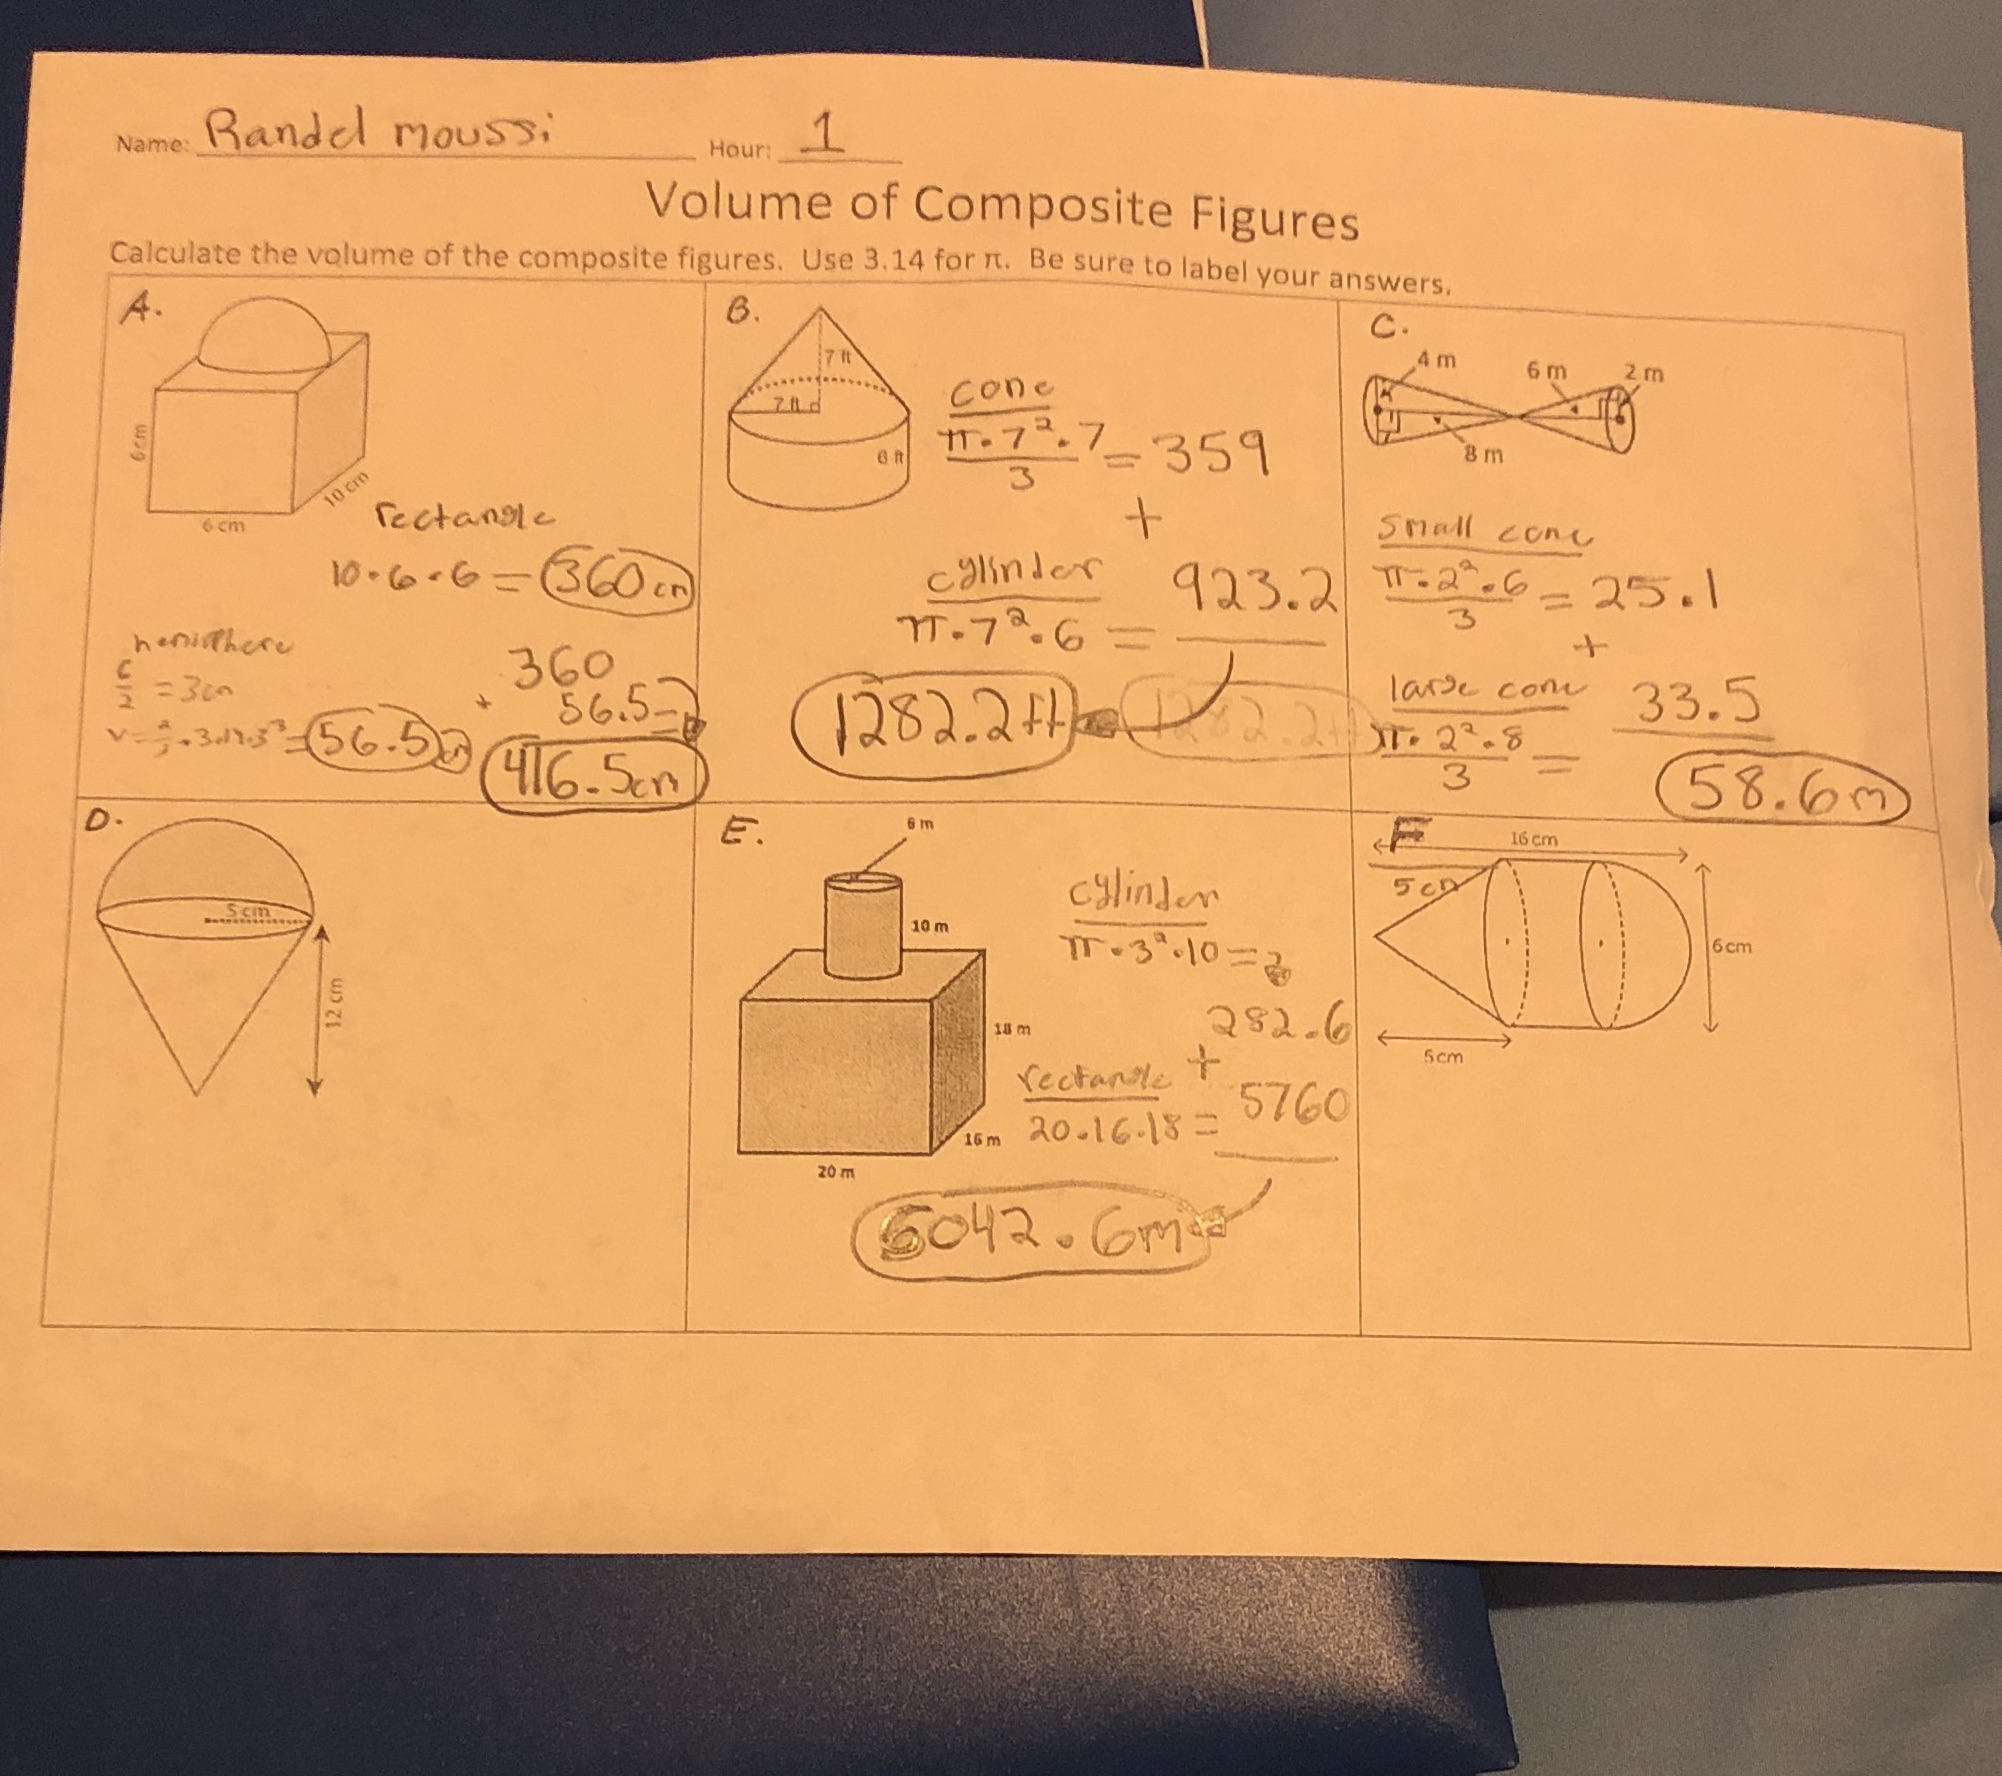 Name: Randel moussi Hour: 1
Volume of Composite Figures
Calculate the volume of the composite figures. Use 3.14 for π. Be sure to label your answers.
A.
6cm
6 cm
10 cm
rectangle
10·6·6 = 360cm
hemisphere
6/2 = 3cm
56.5
360
+ 56.5=
416.5cm
B.
7 ft
7 ft
6 ft
cone
π·7²·7/3 = 359
+
cylinder
π·7²·6 = 923.2
1282.2ft
1282.2ft
C.
4 m
6 m
2 m
8 m
small cone
π·2²·6/3 = 25.1
+
large cone
π·2²·8/3 = 33.5
58.6m
D.
5cm
12 cm
E.
6 m
10 m
18 m
16 m
20 m
cylinder
π·3²·10 =
282.6
+
rectangle
20·16·18 = 5760
6042.6m
F
16cm
5cm
6cm
5cm